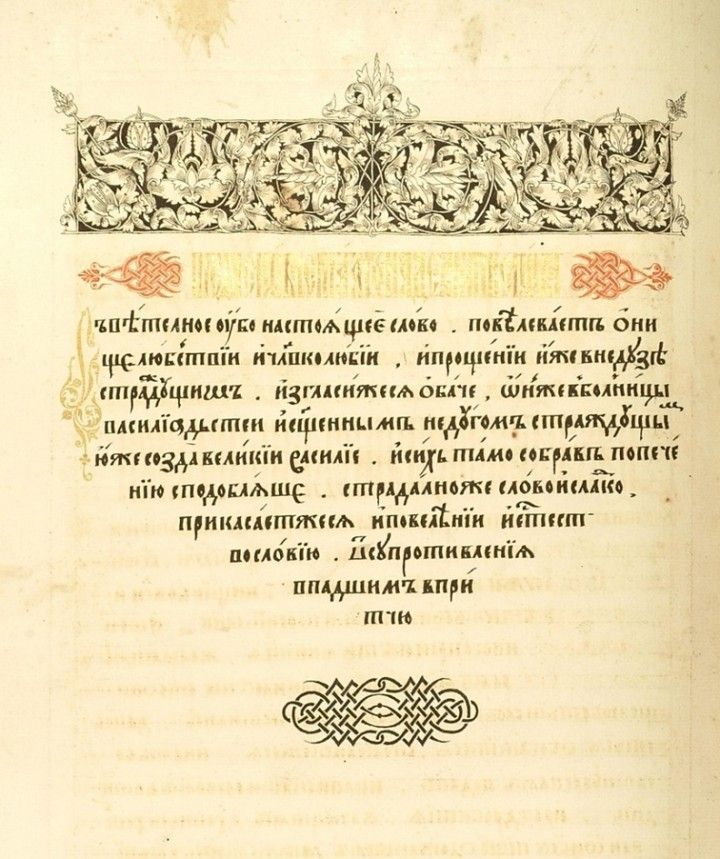 ъвѣтелное оубо настоящеё слово . повѣлеваетъ о҆ни
щелюбствїи и҆чл҃вколюбїи , и҆прошенїи и҆́же внедузѣ
страдꙋщимъ . и҆згласижеся ѻ҆ба́че , ѿни́жев болницы
василїѧ и҆сщ҃енным недугомъ страждущы ᷟ
ю҆́жесозда великїи василїе . и҆си́хъ та́мо собра́въ попече́
нїю сподобляше . страдалноже сло́во и҆сла́ко ,
прикаса́етжеся и҆повелѣнїи и҆ е҆стест
вословїю . Всупротивленїя
впадшимъ впри́
тчю